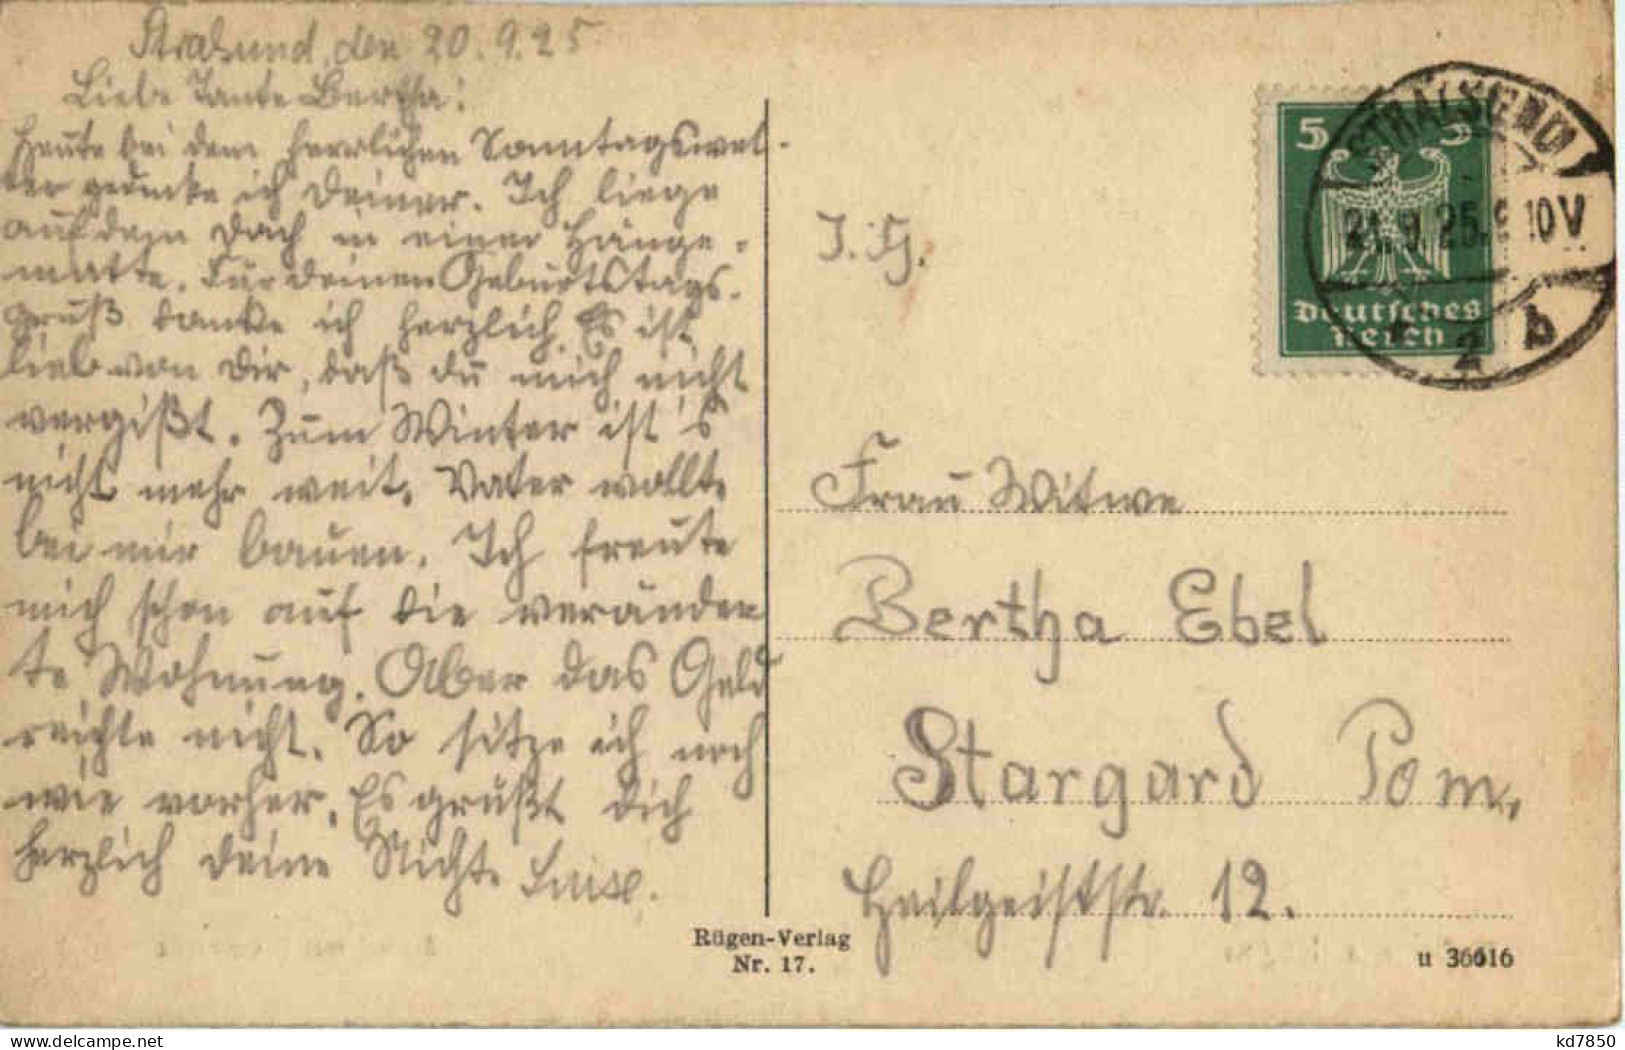 Stralsund, den 20.9.25
Liebe Tante Bertha!
Heute bei dem herrlichen Sonntagswet-
ter gedenke ich Deiner. Ich liege
auf dem Dach in einer Hänge-
matte. Für deinen Geburtstags-
gruß danke ich herzlich. Es ist
lieb von Dir, daß du mich nicht
vergißt. Zum Winter ist's
nicht mehr weit. Vater wollte
bei mir bauen. Ich freute
mich schon auf die veränder
te Wohnung. Aber das Geld
reichte nicht. So sitze ich noch
wie vorher. Es grüßt dich
herzlich deine Nichte Luise.
Rügen-Verlag
Nr. 17.
5 5
Deutsches
Reich
STRALSUND
21.9.25.9-10V
* 2 b
Frau Witwe
Bertha Ebel
Stargard Pom.
Heilgeiststr. 12.
u 36616
www.delcampe.net
kd7850